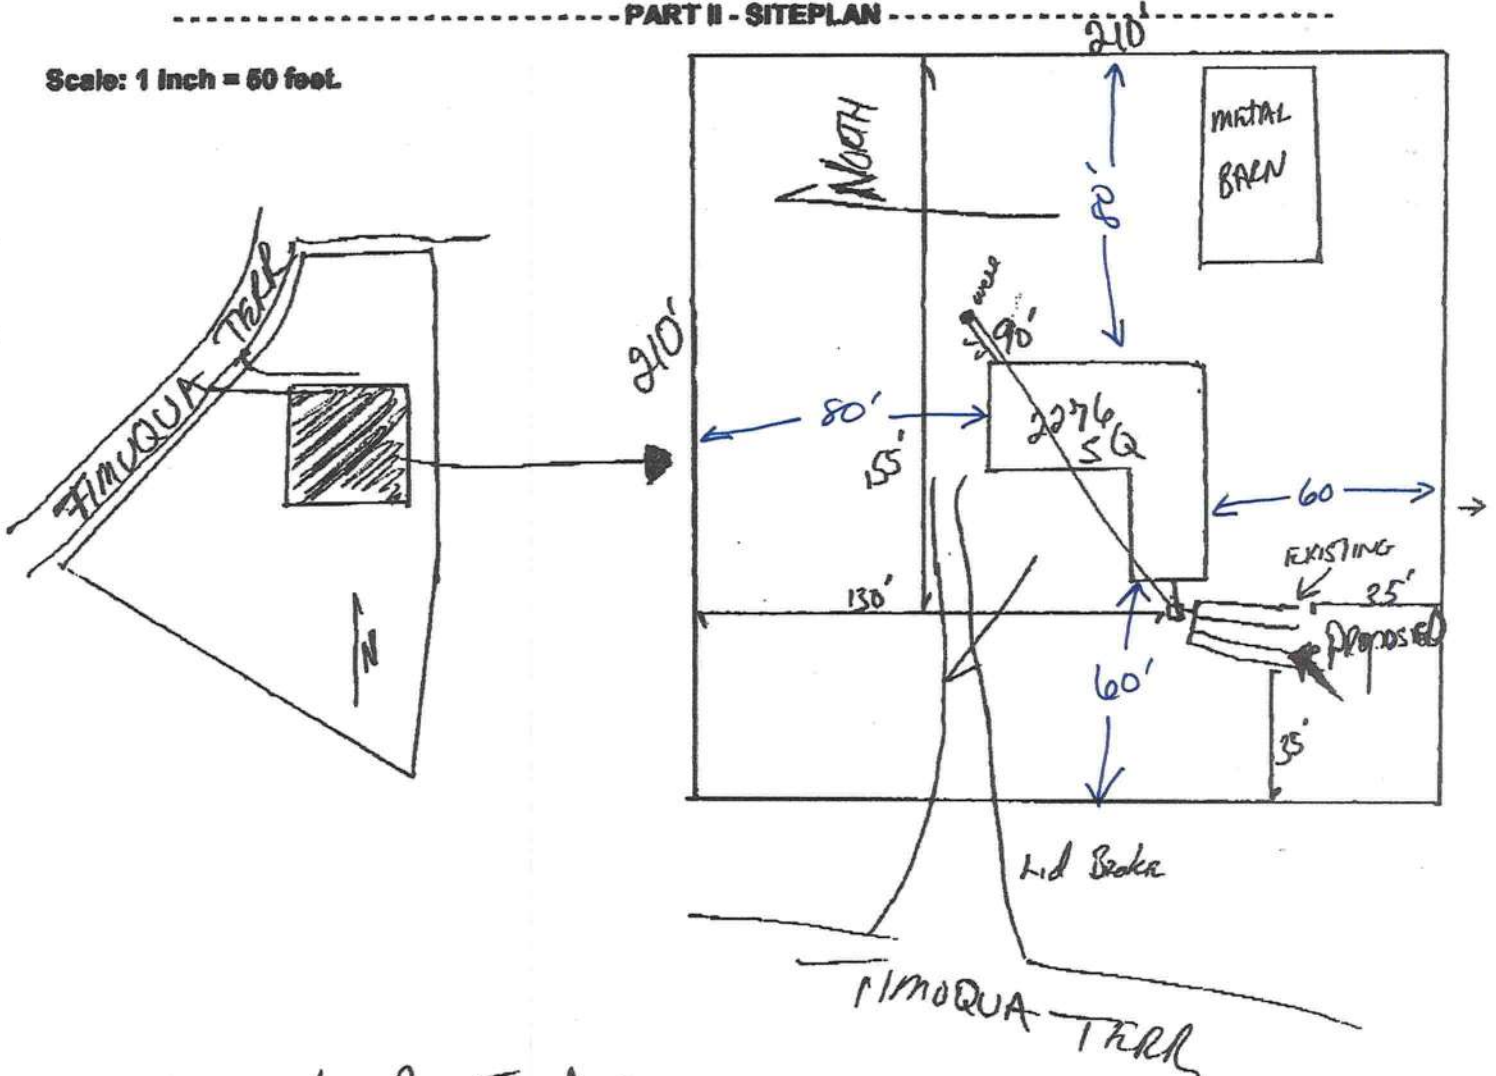 PART II - SITEPLAN
Scale: 1 inch = 50 feet.
210'
METAL
BARN
NORTH
80'
well
90'
210'
TIMUQUA TERR
80'
2276
SQ
155'
60
EXISTING
130'
35'
PROPOSED
N
60'
35'
Lid Broke
TIMUQUA TERR